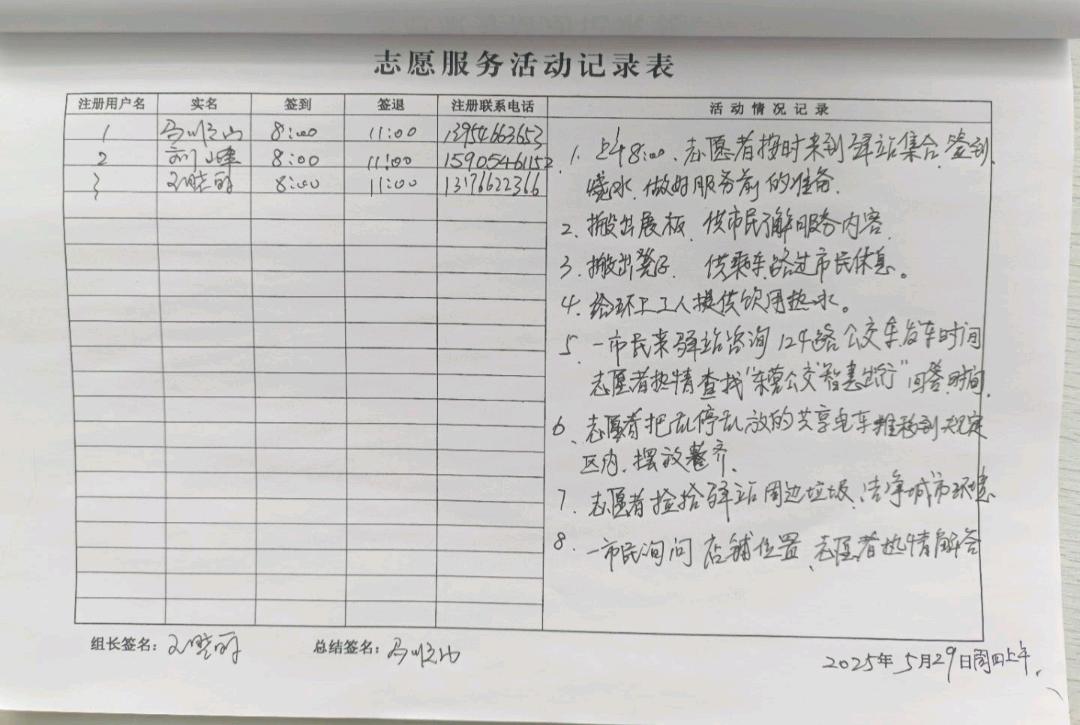 志愿服务活动记录表
注册用户名 实名 签到 签退 注册联系电话 活动情况记录
1 8:00 11:00 13954663653
2 8:00 11:00 15905461152
3 王晓丽 8:00 11:00 13176622366
1、上午8:00、志愿者按时来到驿站集合、签到、
烧水、做好服务前的准备.
2、搬出展板、供市民了解服务内容.
3、搬出凳子 供乘车路过市民休息。
4、给环卫工人提供饮用热水。
5、一市民来驿站咨询124路公交车发车时间
志愿者热情查找“东营公交智惠出行”回答时间.
6、志愿者把乱停乱放的共享电车推移到规定
区内、摆放整齐.
7、志愿者捡拾驿站周边垃圾、洁净城市环境
8、一市民询问店铺位置、志愿者热情解答
组长签名：王晓丽 总结签名：
2025年5月29日周四上午.